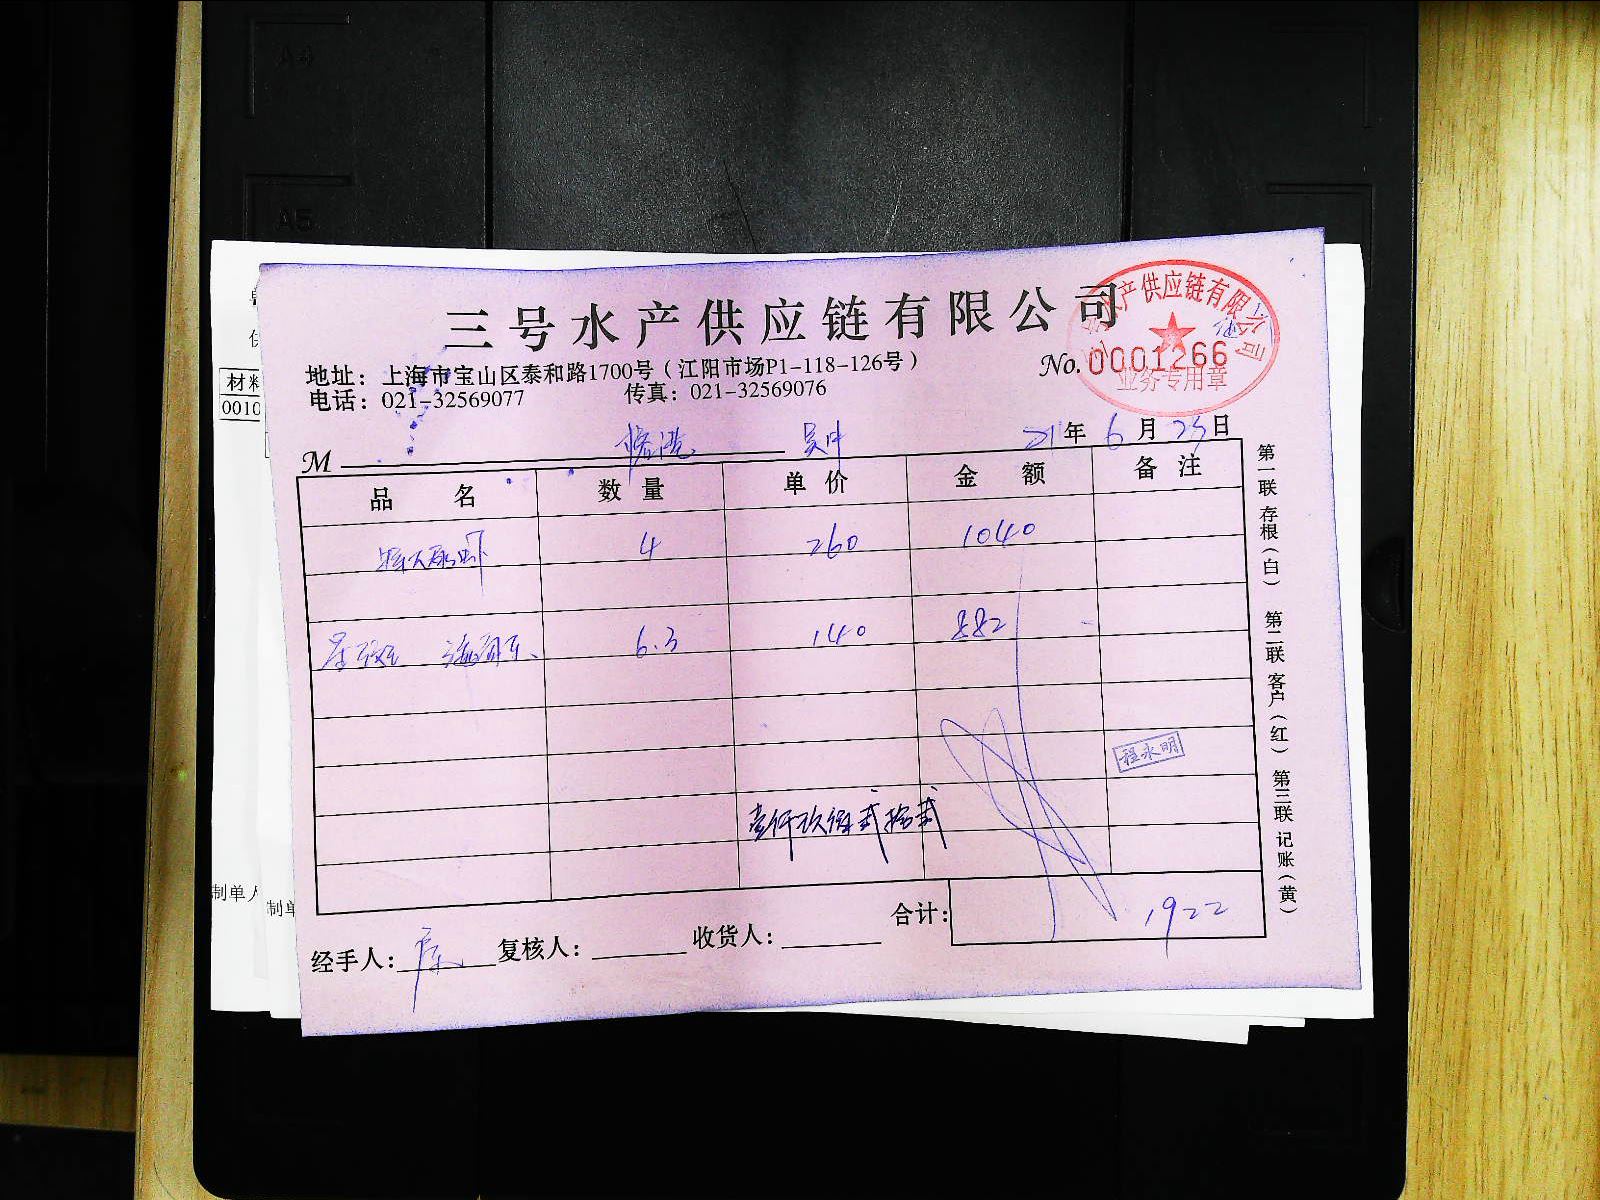 A4
A5
三号水产供应链有限公司
水产供应链有限公司
业务专用章
地址：上海市宝山区泰和路1700号（江阳市场P1-118-126号）
No.0001266
电话：021-32569077 传真：021-32569076
M 21年6月 日
品名 数量 单价 金额 备注
4 260 1040
6.3 140 882
程永明
壹仟玖佰贰拾贰
合计： 1922
经手人： 复核人： 收货人：
第一联 存根（白） 第二联 客户（红） 第三联 记账（黄）
材料
0010
制单人
制单